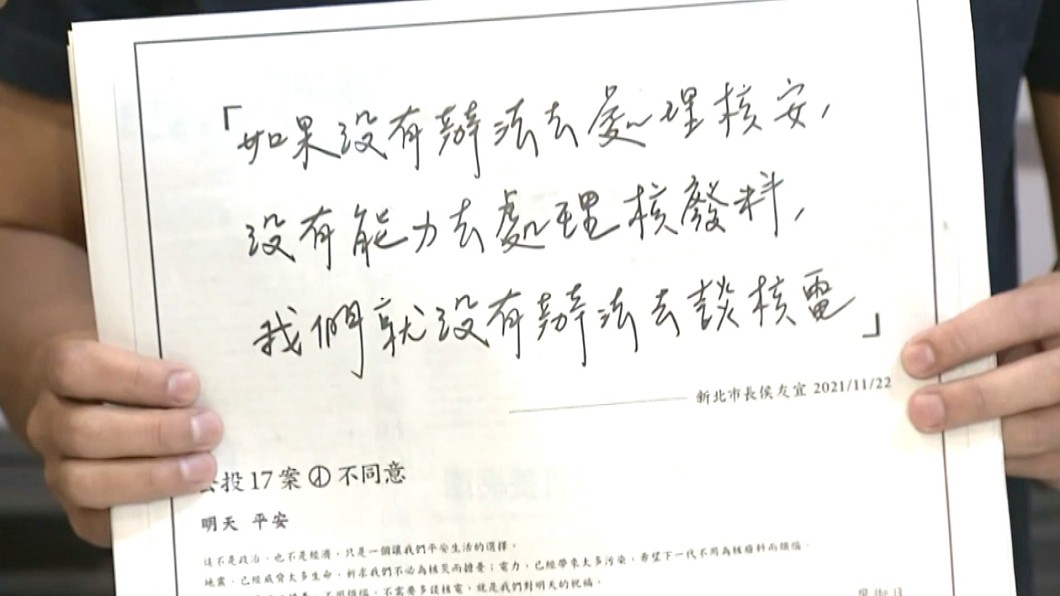 「如果沒有辦法去處理核安,
沒有能力去處理核廢料,
我們就沒有辦法去談核電」
新北市長侯友宜 2021/11/22
公投17案 不同意
明天 平安
這不是政治,也不是經濟,只是一個讓我們平安生活的選擇。
地震,已經威脅太多生命,祈求我們不必為核災而擔憂;電力,已經帶來太多污染,希望下一代不用為核廢料而煩惱。
不需要多談核電,就是我們對明天的祝福。